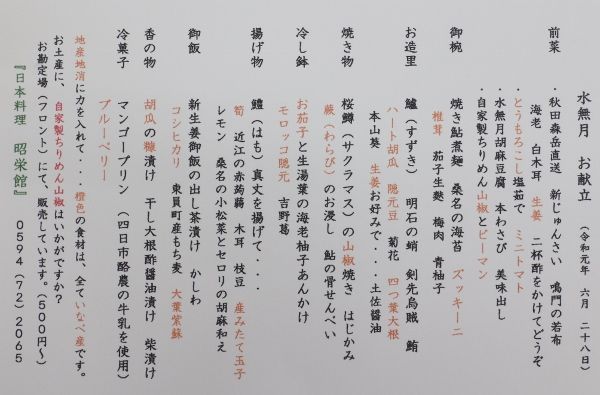 水無月 お献立 （令和元年 六月 二十八日）
前菜 ・秋田森岳直送 新じゅんさい 鳴門の若布
海老 白木耳 生姜 二杯酢をかけてどうぞ
・とうもろこし塩茹で ミニトマト
・水無月胡麻豆腐 本わさび 美味出し
・自家製ちりめん山椒とピーマン
御椀 焼き鮎煮麺 桑名の海苔 ズッキーニ
椎茸 茄子生麩 梅肉 青柚子
お造里 鱸（すずき） 明石の蛸 剣先烏賊 鮪
ハート胡瓜 隠元豆 菊花 四つ葉大根
本山葵 生姜お好みで・・・土佐醤油
焼き物 桜鱒（サクラマス）の山椒焼き はじかみ
蕨（わらび）のお浸し 鮎の骨せんべい
冷し鉢 お茄子と生湯葉の海老柚子あんかけ
モロッコ隠元 吉野葛
揚げ物 鱧（はも）真丈を揚げて・・・
筍 近江の赤蒟蒻 木耳 枝豆 産みたて玉子
レモン 桑名の小松菜とセロリの胡麻和え
御飯 新生姜御飯の出し茶漬け かしわ
コシヒカリ 東員町産もち麦 大葉紫蘇
香の物 胡瓜の糠漬け 干し大根酢醤油漬け 柴漬け
冷菓子 マンゴープリン （四日市酪農の牛乳を使用）
ブルーベリー
地産地消に力を入れて・・・橙色の食材は、全ていなべ産です。
お土産に、自家製ちりめん山椒はいかがですか？
お勘定場（フロント）にて、販売しています。（５００円〜）
『日本料理 昭栄館』 ０５９４（７２）２０６５